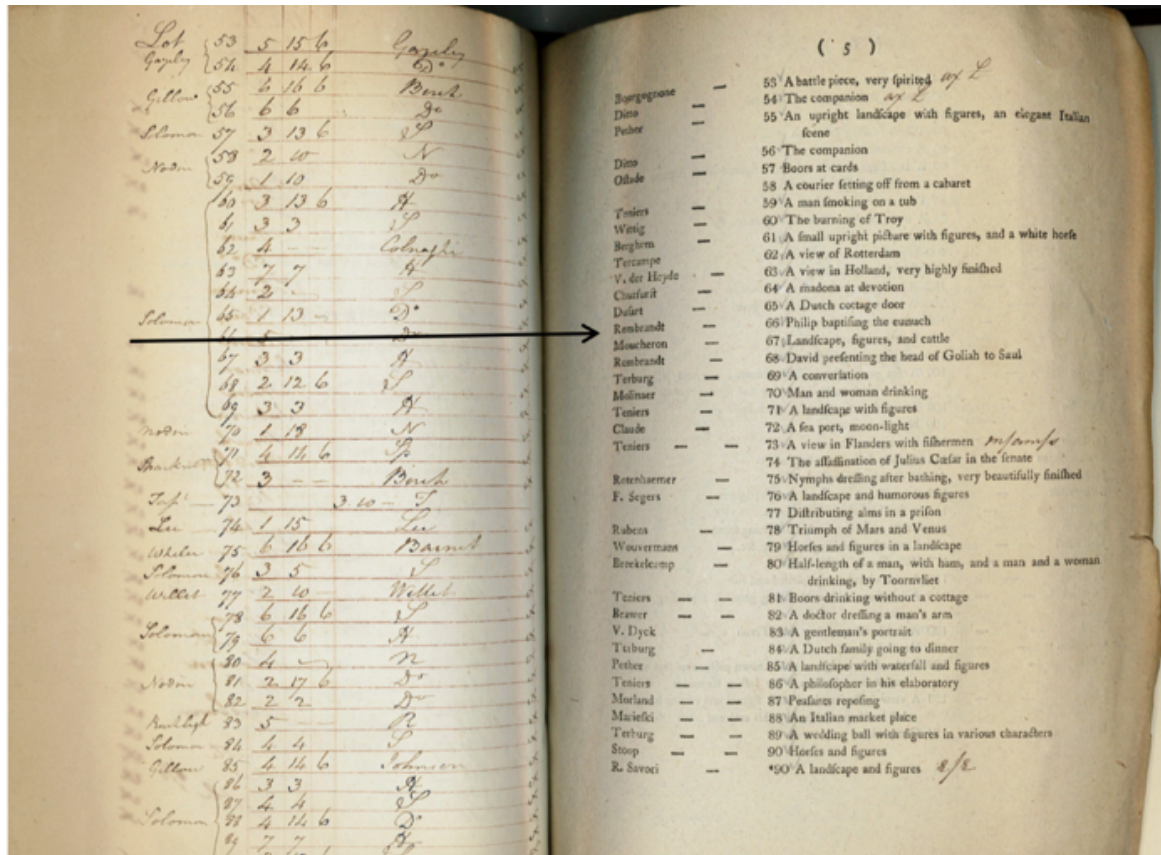 Lot 53 5 15 6
54 4 14 6 Do
Gillow 55 6 16 6 Birch
56 6 6 Do
Solomon 57 3 13 6 S
Nodin 58 2 10 N
59 1 10 Do
60 3 13 6 H
61 3 3 S
62 4 - - Colnaghi
63 7 7 H
64 2 - S
Solomon 65 1 13 - Do
66 5 Do
67 3 3 H
68 2 12 6 S
69 3 3 H
Nodin 70 1 18 N
71 4 14 6 Sp
72 3 - - Birch
73 3 10 -
Lee 74 1 15 Lee
Wheler 75 6 16 6 Barnet
Solomon 76 3 5 S
Willet 77 2 10 - Willet
78 6 16 6 S
Solomon 79 6 6 H
80 4 - N
Nodin 81 2 17 6 Do
82 2 2 Do
83 5 - R
Solomon 84 4 4 S
Gillow 85 4 14 6 Johnson
86 3 3 H
87 4 4 S
Solomon 88 4 14 6 Do
89 7 7 H
( 5 )
Bourgognone — 53 A battle piece, very ſpirited
Ditto — 54 The companion
Pether — 55 An upright landſcape with figures, an elegant Italian
ſcene
Ditto — 56 The companion
Oſtade — 57 Boors at cards
58 A courier ſetting off from a cabaret
Teniers — 59 A man ſmoking on a tub
Wittig — 60 The burning of Troy
Berghem — 61 A ſmall upright picture with figures, and a white horſe
Tercampe 62 A view of Rotterdam
V. der Heyde — 63 A view in Holland, very highly finiſhed
64 A madona at devotion
Duſart — 65 A Dutch cottage door
Rembrandt — 66 Philip baptiſing the eunuch
Moucheron — 67 Landſcape, figures, and cattle
Rembrandt — 68 David preſenting the head of Goliah to Saul
Terburg — 69 A converſation
Molinaer — 70 Man and woman drinking
Teniers — 71 A landſcape with figures
Claude — 72 A ſea port, moon-light
Teniers — — 73 A view in Flanders with fiſhermen
74 The aſſaſſination of Julius Cæſar in the ſenate
Rotenhaemer — 75 Nymphs dreſſing after bathing, very beautifully finiſhed
F. Segers — 76 A landſcape and humorous figures
77 Diſtributing alms in a priſon
Rubens — 78 Triumph of Mars and Venus
Wouvermans — 79 Horſes and figures in a landſcape
Brekelcamp — 80 Half-length of a man, with ham, and a man and a woman
drinking, by Toornvliet
Teniers — — 81 Boors drinking without a cottage
Brawer — — 82 A doctor dreſſing a man's arm
V. Dyck 83 A gentleman's portrait
Terburg — 84 A Dutch family going to dinner
Pether — 85 A landſcape with waterfall and figures
Teniers — — 86 A philoſopher in his elaboratory
Morland — — 87 Peaſants repoſing
Marieſki — — 88 An Italian market place
Terburg — — 89 A wedding ball with figures in various characters
Stoop — — 90 Horſes and figures
R. Savori — *90 A landſcape and figures